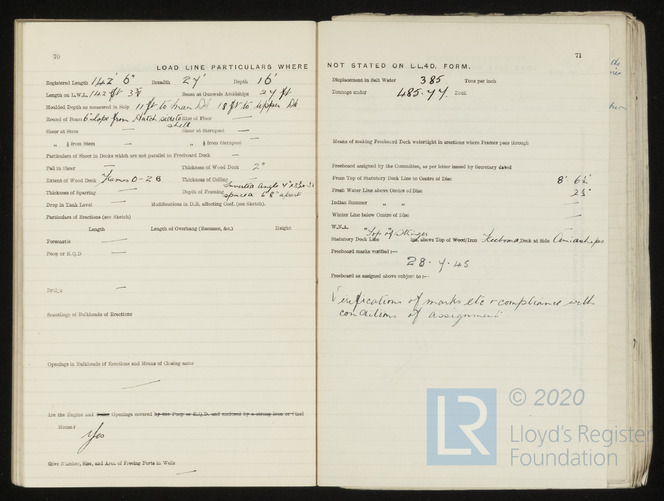 70
LOAD LINE PARTICULARS WHERE
Registered Length 142' 6" Breadth 27' Depth 16'
Length on L.W.L. 142 ft Beam at Gunwale Amidships 27 ft
Moulded Depth as measured in Ship 11 ft to main Dk 18 ft to upper Dk
Round of Beam 6" slope from Hatch side to shell Rise of Floor —
Sheer at Stem — Sheer at Sternpost —
„ ⅛ from Stem — „ ⅛ from Sternpost —
Particulars of Sheer in Decks which are not parallel to Freeboard Deck —
Fall in Sheer — Thickness of Wood Deck 2"
Extent of Wood Deck Frames 0 - 28 Thickness of Ceiling —
Thickness of Sparring — Depth of Framing
spaced 6'8" apart
Drop in Tank Level — Modifications in D.B. affecting Coef. (see Sketch).
Particulars of Erections (see Sketch)
Length Length of Overhang (Recesses, &c.) Height
Forecastle —
Poop or R.Q.D —
Bridge —
Scantlings of Bulkheads of Erections
Openings in Bulkheads of Erections and Means of Closing same
—
Are the Engine and Boiler Openings covered by the Poop or R.Q.D. and enclosed by a strong Iron or Steel
House?
Yes
Give Number, Size, and Area of Freeing Ports in Wells
—
71
NOT STATED ON LL.4D. FORM.
Displacement in Salt Water 385 Tons per inch
Tonnage under 485.77 Deck
Means of making Freeboard Deck watertight in erections where Frames pass through
Freeboard assigned by the Committee, as per letter issued by Secretary dated
From Top of Statutory Deck Line to Centre of Disc 8' 6½
Fresh Water Line above Centre of Disc 2½"
Indian Summer „ „ —
Winter Line below Centre of Disc —
W.N.A. —
Statutory Deck Line "Top" of Stringer ins. above Top of Wood/Iron Freeboard Deck at Side Amidships
Freeboard marks verified :—
28 . 7 . 45
Freeboard as assigned above subject to :—
Verifications of marks etc & compliance with
conditions of assignment
© 2020
LR Lloyd's Register
Foundation